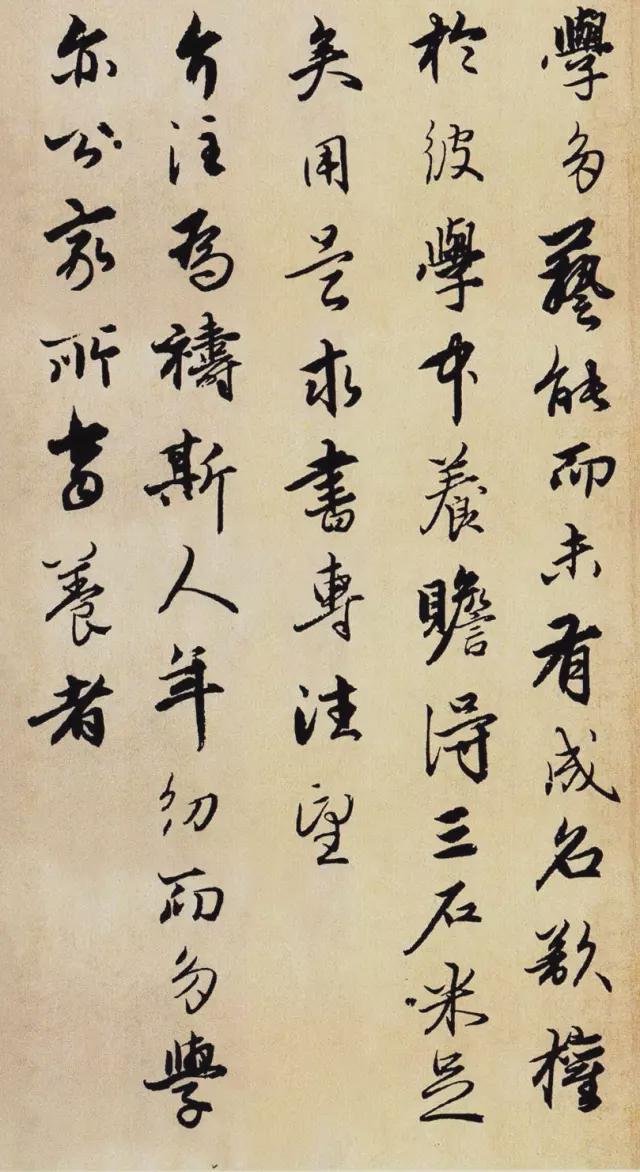 學多藝能而未有成名欲權
於彼學中養贍得三石米足
矣用是求書專往望
介注爲禱斯人年幼而多學
亦公家所當養者